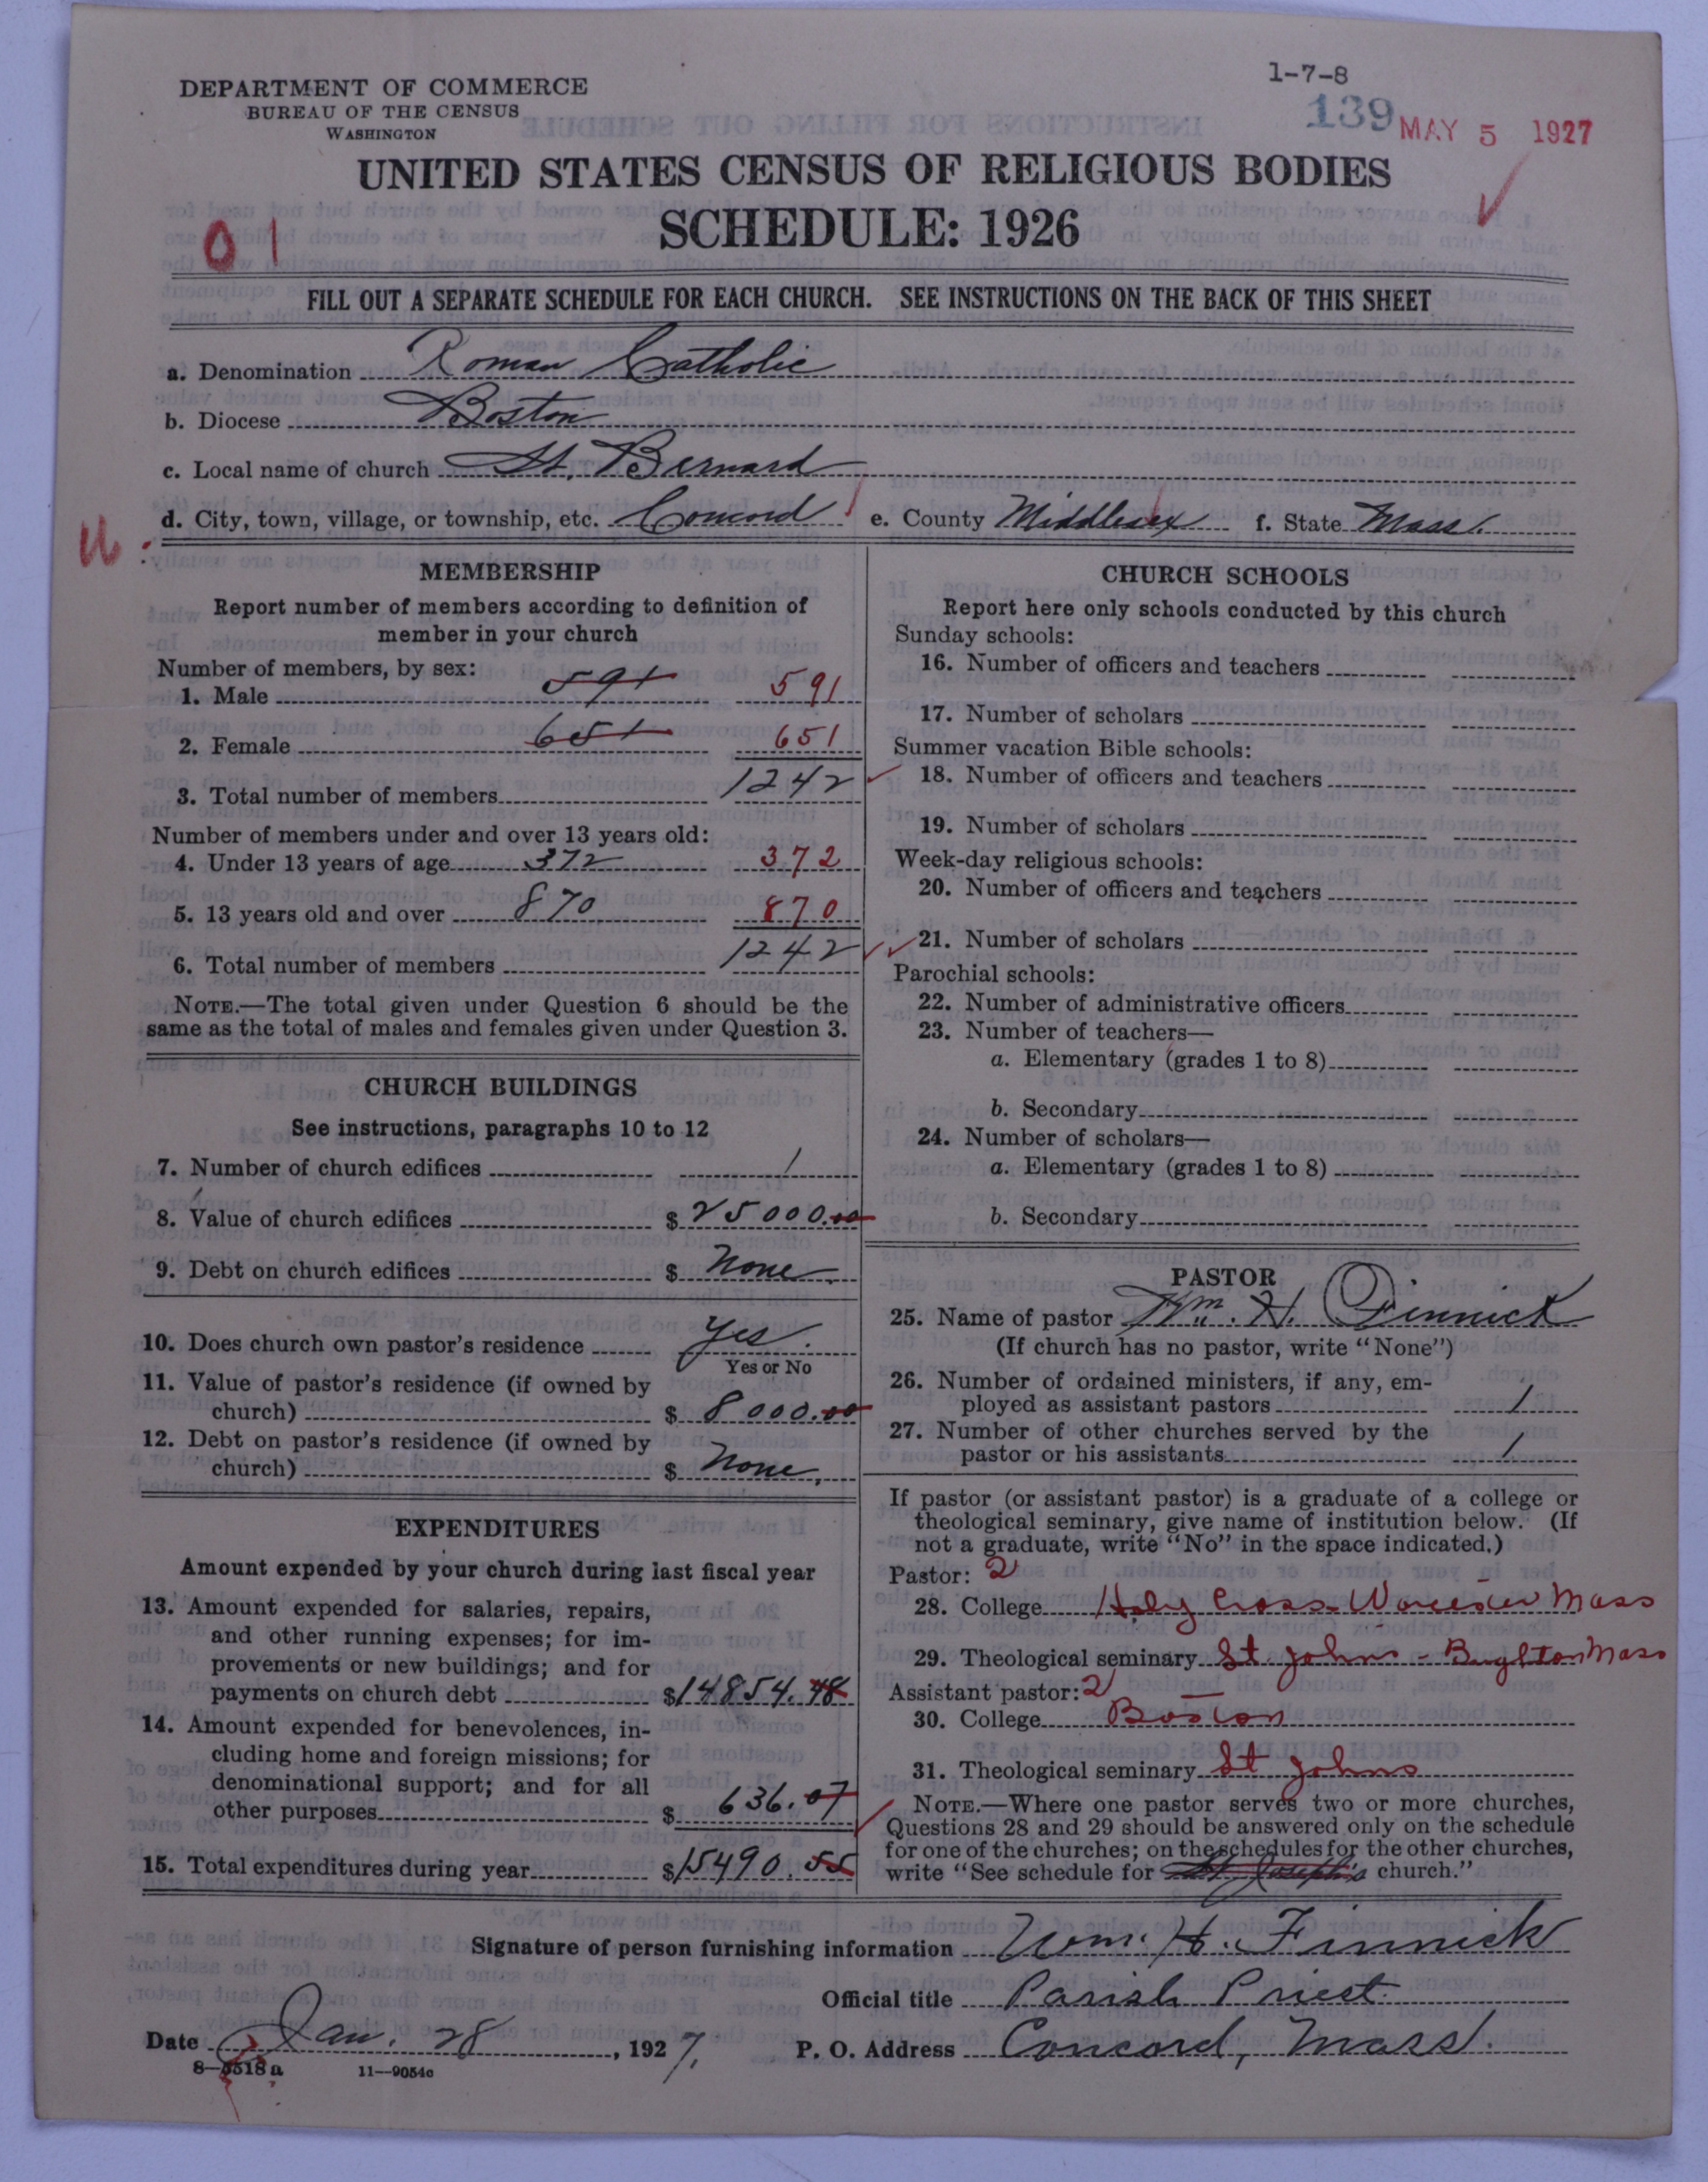 DEPARTMENT OF COMMERCE
BUREAU OF THE CENSUS
WASHINGTON
1-7-8
139 MAY 5 1927
UNITED STATES CENSUS OF RELIGIOUS BODIES
SCHEDULE: 1926
01
FILL OUT A SEPARATE SCHEDULE FOR EACH CHURCH. SEE INSTRUCTIONS ON THE BACK OF THIS SHEET
a. Denomination Roman Catholic
b. Diocese Boston
c. Local name of church St. Bernard
d. City, town, village, or township, etc. Concord e. County Middlesex f. State Mass.
MEMBERSHIP
Report number of members according to definition of
member in your church
Number of members, by sex:
1. Male 591 591
2. Female 651 651
3. Total number of members 1242
Number of members under and over 13 years old:
4. Under 13 years of age 372 372
5. 13 years old and over 870 870
6. Total number of members 1242
NOTE.—The total given under Question 6 should be the
same as the total of males and females given under Question 3.
CHURCH BUILDINGS
See instructions, paragraphs 10 to 12
7. Number of church edifices 1
8. Value of church edifices $ 25000.00
9. Debt on church edifices $ None.
10. Does church own pastor's residence Yes.
Yes or No
11. Value of pastor's residence (if owned by
church) $ 8000.00
12. Debt on pastor's residence (if owned by
church) $ None.
EXPENDITURES
Amount expended by your church during last fiscal year
13. Amount expended for salaries, repairs,
and other running expenses; for im-
provements or new buildings; and for
payments on church debt $14854.48
14. Amount expended for benevolences, in-
cluding home and foreign missions; for
denominational support; and for all
other purposes $ 636.07
15. Total expenditures during year $15490.55
CHURCH SCHOOLS
Report here only schools conducted by this church
Sunday schools:
16. Number of officers and teachers
17. Number of scholars
Summer vacation Bible schools:
18. Number of officers and teachers
19. Number of scholars
Week-day religious schools:
20. Number of officers and teachers
21. Number of scholars
Parochial schools:
22. Number of administrative officers
23. Number of teachers—
a. Elementary (grades 1 to 8)
b. Secondary
24. Number of scholars—
a. Elementary (grades 1 to 8)
b. Secondary
PASTOR
25. Name of pastor Wm. H. Finnick
(If church has no pastor, write "None")
26. Number of ordained ministers, if any, em-
ployed as assistant pastors 1
27. Number of other churches served by the
pastor or his assistants 1
If pastor (or assistant pastor) is a graduate of a college or
theological seminary, give name of institution below. (If
not a graduate, write "No" in the space indicated.)
Pastor: 2
28. College Holy Cross - Worcester Mass
29. Theological seminary St Johns - Brighton Mass
Assistant pastor: 2
30. College Boston
31. Theological seminary St Johns
NOTE.—Where one pastor serves two or more churches,
Questions 28 and 29 should be answered only on the schedule
for one of the churches; on the schedules for the other churches,
write "See schedule for St Joseph's church."
Signature of person furnishing information Wm. H. Finnick
Official title Parish Priest.
Date Jan. 28, 1927. P. O. Address Concord, Mass.
8—5518a 11—9054c